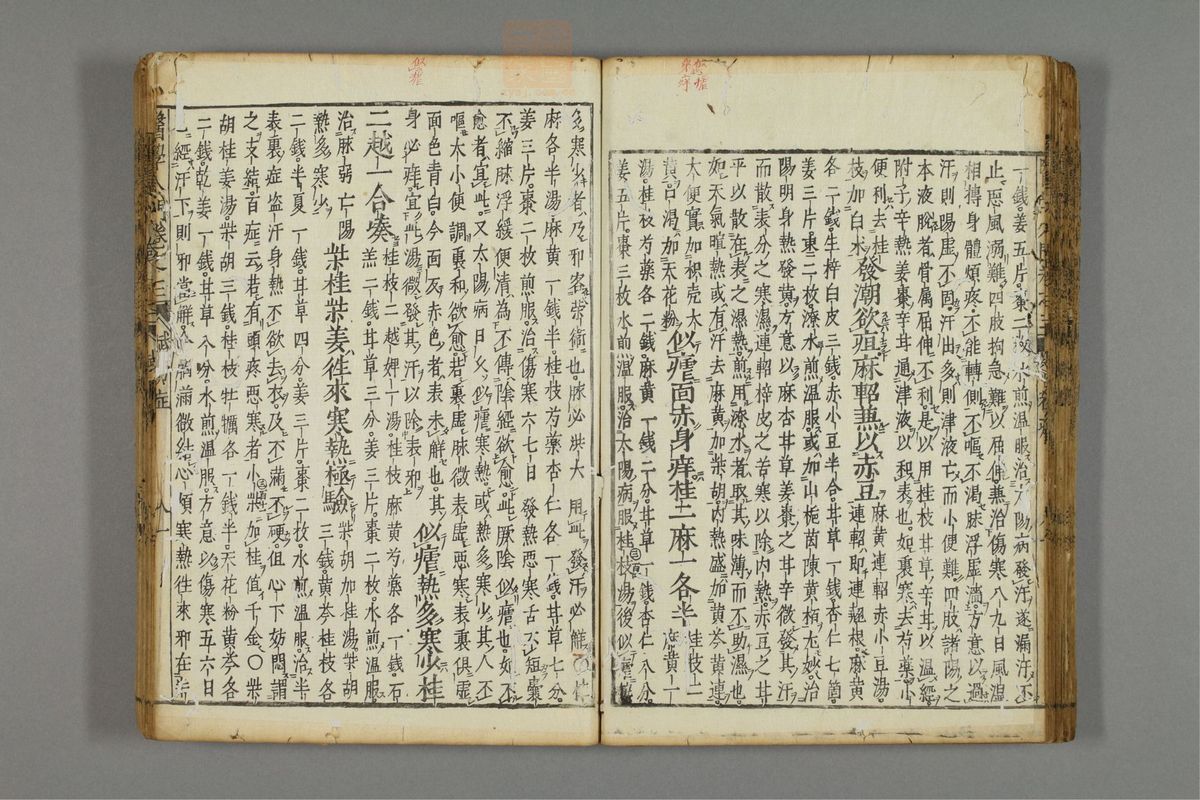 一錢姜五片棗二枚水煎溫服治太陽病發汗遂漏汗不
止惡風溺難四肢拘急難以屈伸兼治傷寒八九日風溫
相搏身體煩疼不能轉側不嘔不渴脉浮虛濇方意以過
汗則陽虛不固汗出多則津液亡而小便難四肢諸陽之
本液脫者骨属屈伸不利是以用桂枝甘草辛甘以溫經
附子辛熱姜棗辛甘通津液以和表也如裏寒去芍藥小
便利去桂枝加白朮發潮欲疸麻軺兼以赤豆麻黃連軺赤小豆湯
連軺即連翹根麻黃
各二錢生梓白皮三錢赤小豆半合甘草一錢杏仁七箇
姜三片棗二枚潦水煎溫服或加山梔茵陳黃栢尤妙治
陽明身熱發黃方意以麻杏甘草姜棗之甘辛微發其汗
而散表分之寒濕連軺梓皮之苦寒以除內熱赤豆之甘
平以散在表之濕熱煎用潦水者取其味薄而不助濕也
如天氣暄熱或有汗去麻黃加柴胡內熱盛加黃芩黃連
大便實加枳壳大
黃口渴加天花粉似瘧面赤身痒桂二麻一各半桂枝二
麻黃一
湯桂枝芍藥各二錢麻黃一錢二分甘草一錢杏仁八分
姜五片棗三枚水煎溫服治太陽病服桂枝湯後似瘧
多寒少者乃邪客榮衛也脉必洪大用此發汗必解〇桂
麻各半湯麻黃一錢半桂枝芍藥杏仁各一錢甘草七分
姜三片棗二枚煎服治傷寒六七日發熱惡寒舌不短囊
不縮脉浮緩便清為不傳陰經欲愈此厥陰似瘧也如不
愈者宜此又太陽病日久似瘧寒熱或熱多寒少其人不
嘔大小便調裏和欲愈若裏虛脉微表虛惡寒表裏俱虛
面色青白今面灰赤色者表未解也其
身必痒宜此湯微發其汗以除表邪似瘧熱多寒少桂
二越一合湊桂枝二越婢一湯桂枝麻黃芍藥各一錢石
羔二錢甘草三分姜三片棗二枚水煎溫服
治脉弱亡陽
熱多寒少柴桂柴姜徃來寒熱極驗柴胡加桂湯柴胡
三錢黃芩桂枝各
二錢半夏一錢甘草四分姜三片棗二枚水煎溫服治半
表裏症盜汗身熱不欲去衣及不滿不硬但心下妨悶謂
之支結首症云若有頭疼惡寒者小柴加桂值千金〇柴
胡桂姜湯柴胡三錢桂枝牡蠣各一錢半天花粉黃芩各
二錢乾姜一錢甘草八分水煎溫服方意以傷寒五六日
已經汗下則邪當解今胸滿微結心煩寒熱徃來邪在半
醫學入門